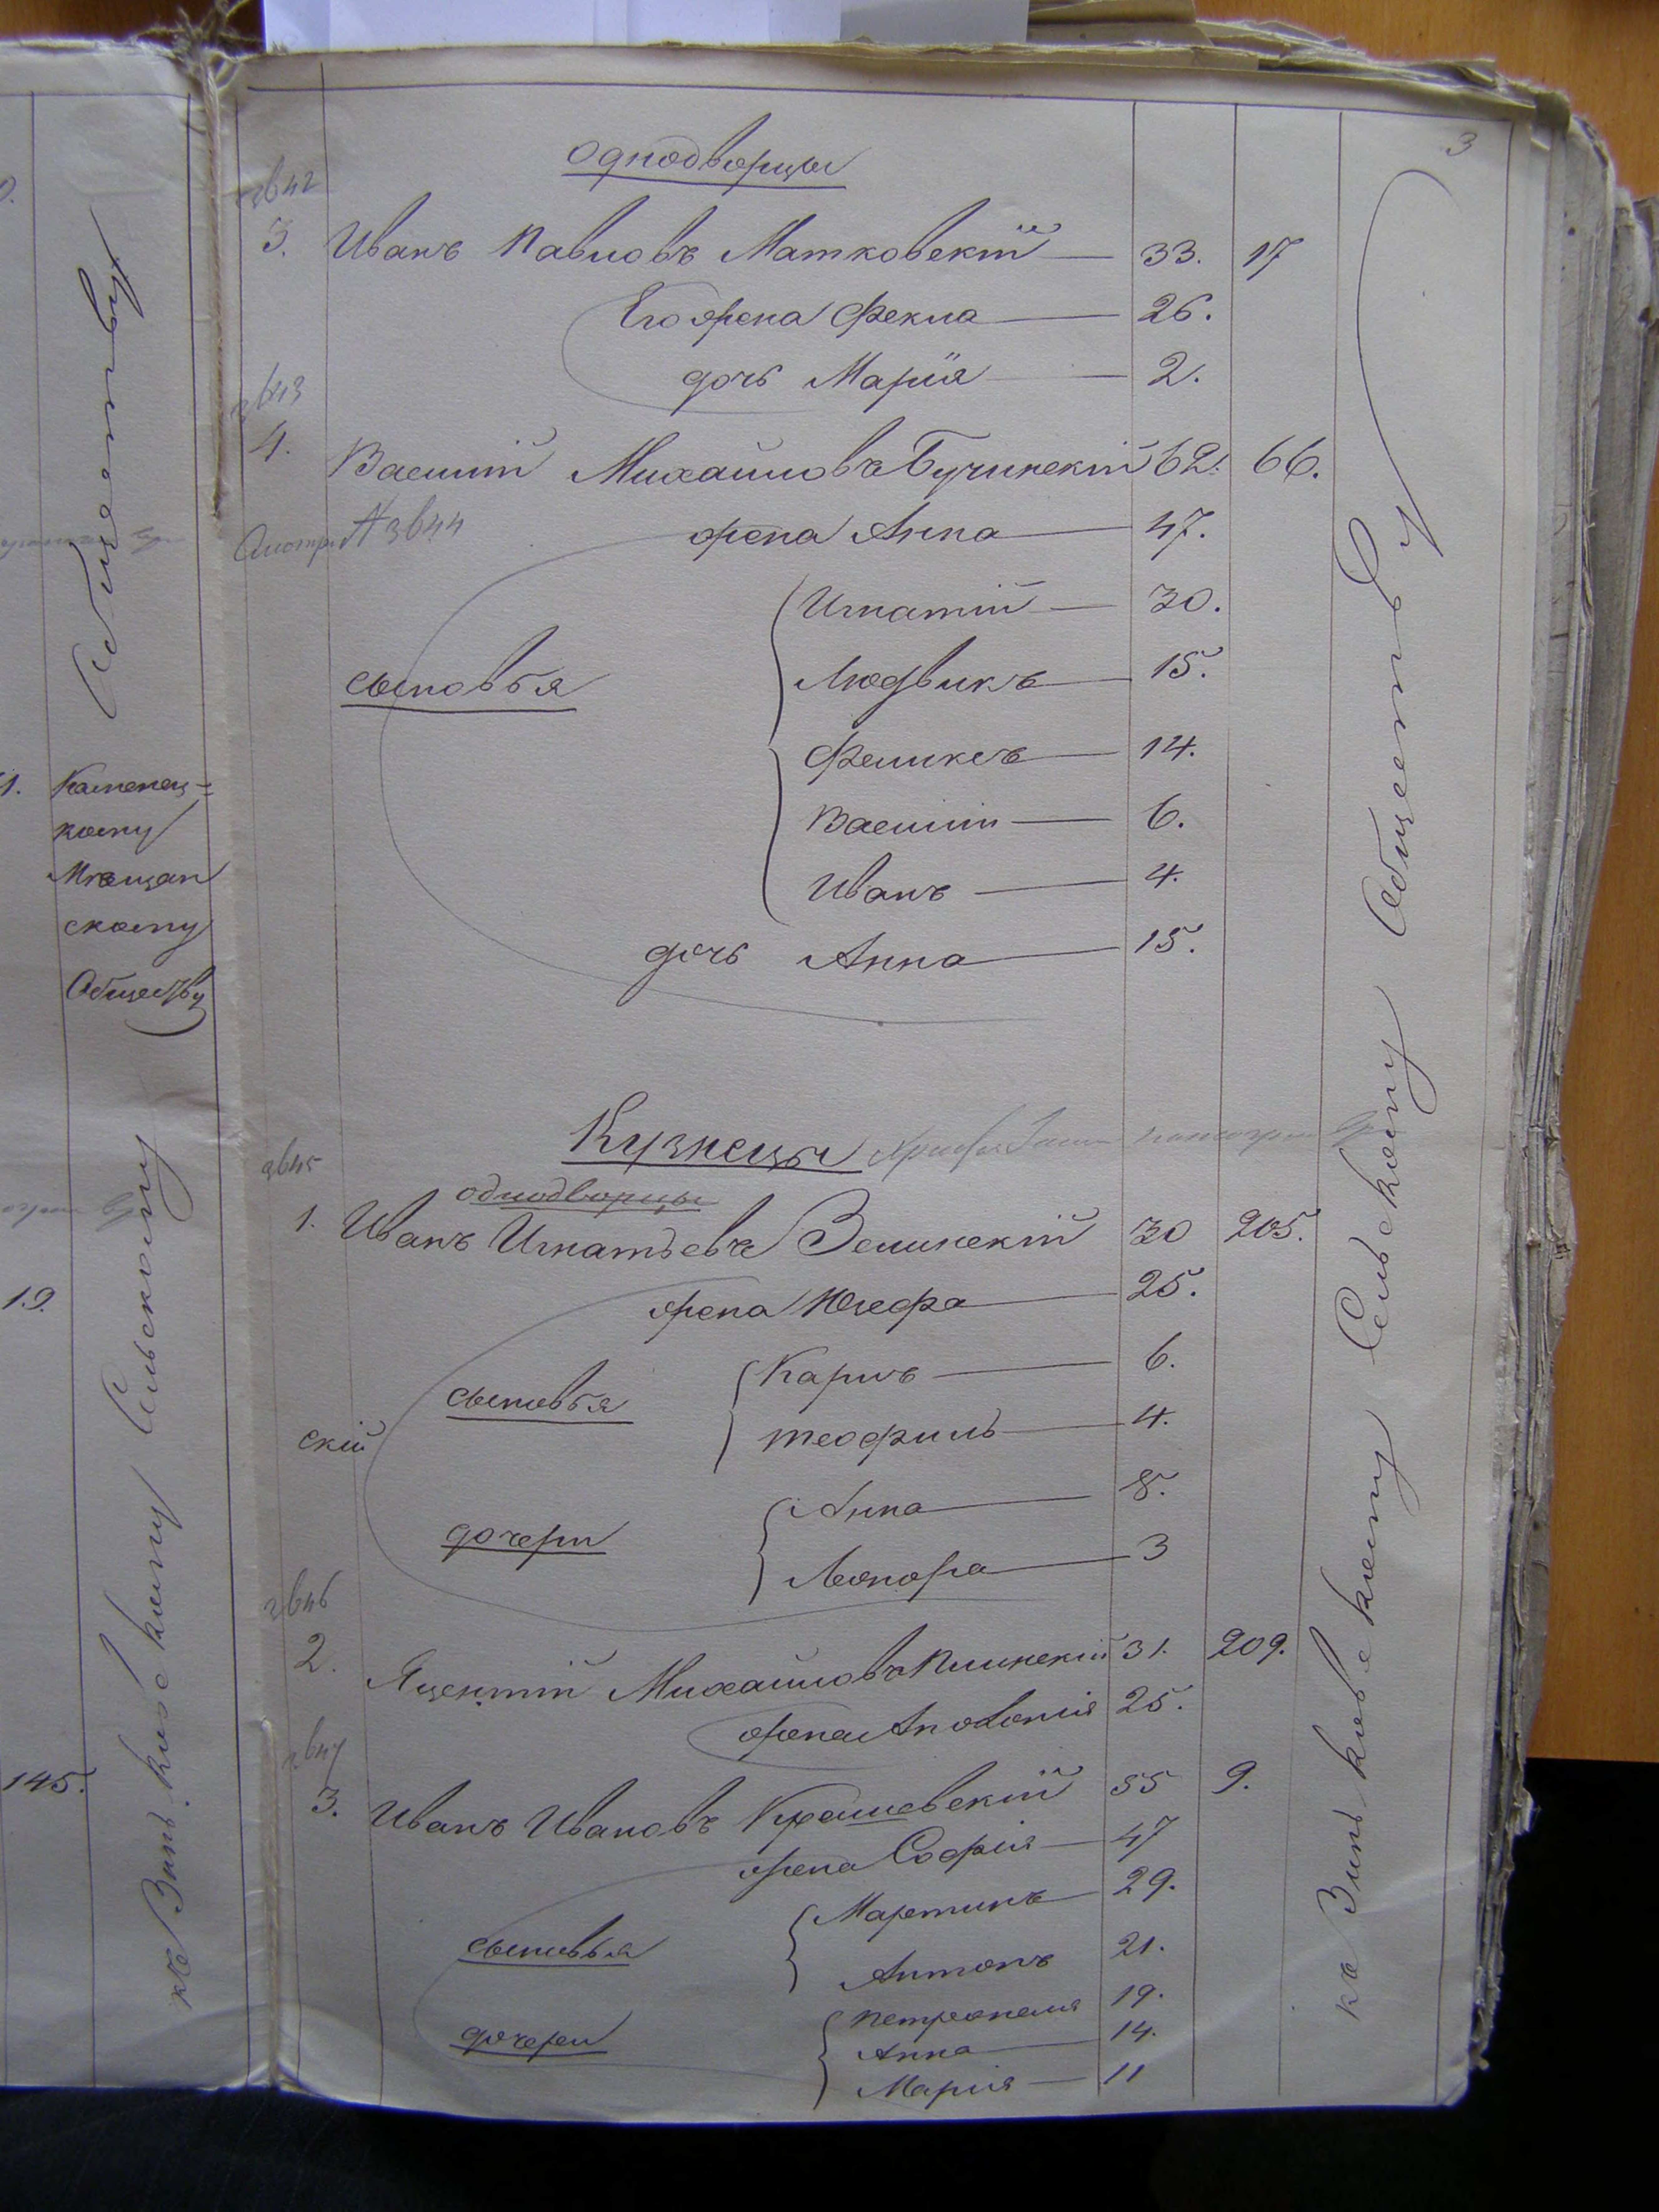 3
однодворцы
3642
3. Иванъ Павловъ Матковскій 33. 17
Его жена Фекла 26.
дочь Марія 2.
3643
4. Василій Михайловъ Бучинскій 62. 66.
3644
жена Анна 47.
сыновья
Игнатій 30.
Людвикъ 15.
Феликсъ 14.
Василій 6.
Иванъ 4.
дочь Анна 15.
Кузнецы
3645
однодворцы
1. Иванъ Игнатьевъ Зелинскій 30 205.
жена Юзефа 25.
сыновья
Карлъ 6.
Теофиль 4.
скій
дочери
Анна 8.
Леонора 3
3646
2. Яцентій Михайловъ Илинскій 31. 209.
жена Аполонія 25.
3647
3. Иванъ Ивановъ 55 9.
жена Софія 47
сыновья
Мартинъ 29.
Антонъ 21.
дочери
Петронеля 19.
Анна 14.
Марія 11
къ Виньковскому Сельскому Обществу
Обществу
1. Каменец=
кому
Мѣщан
скому
Обществу
19.
145.
къ Виньковскому Сельскому